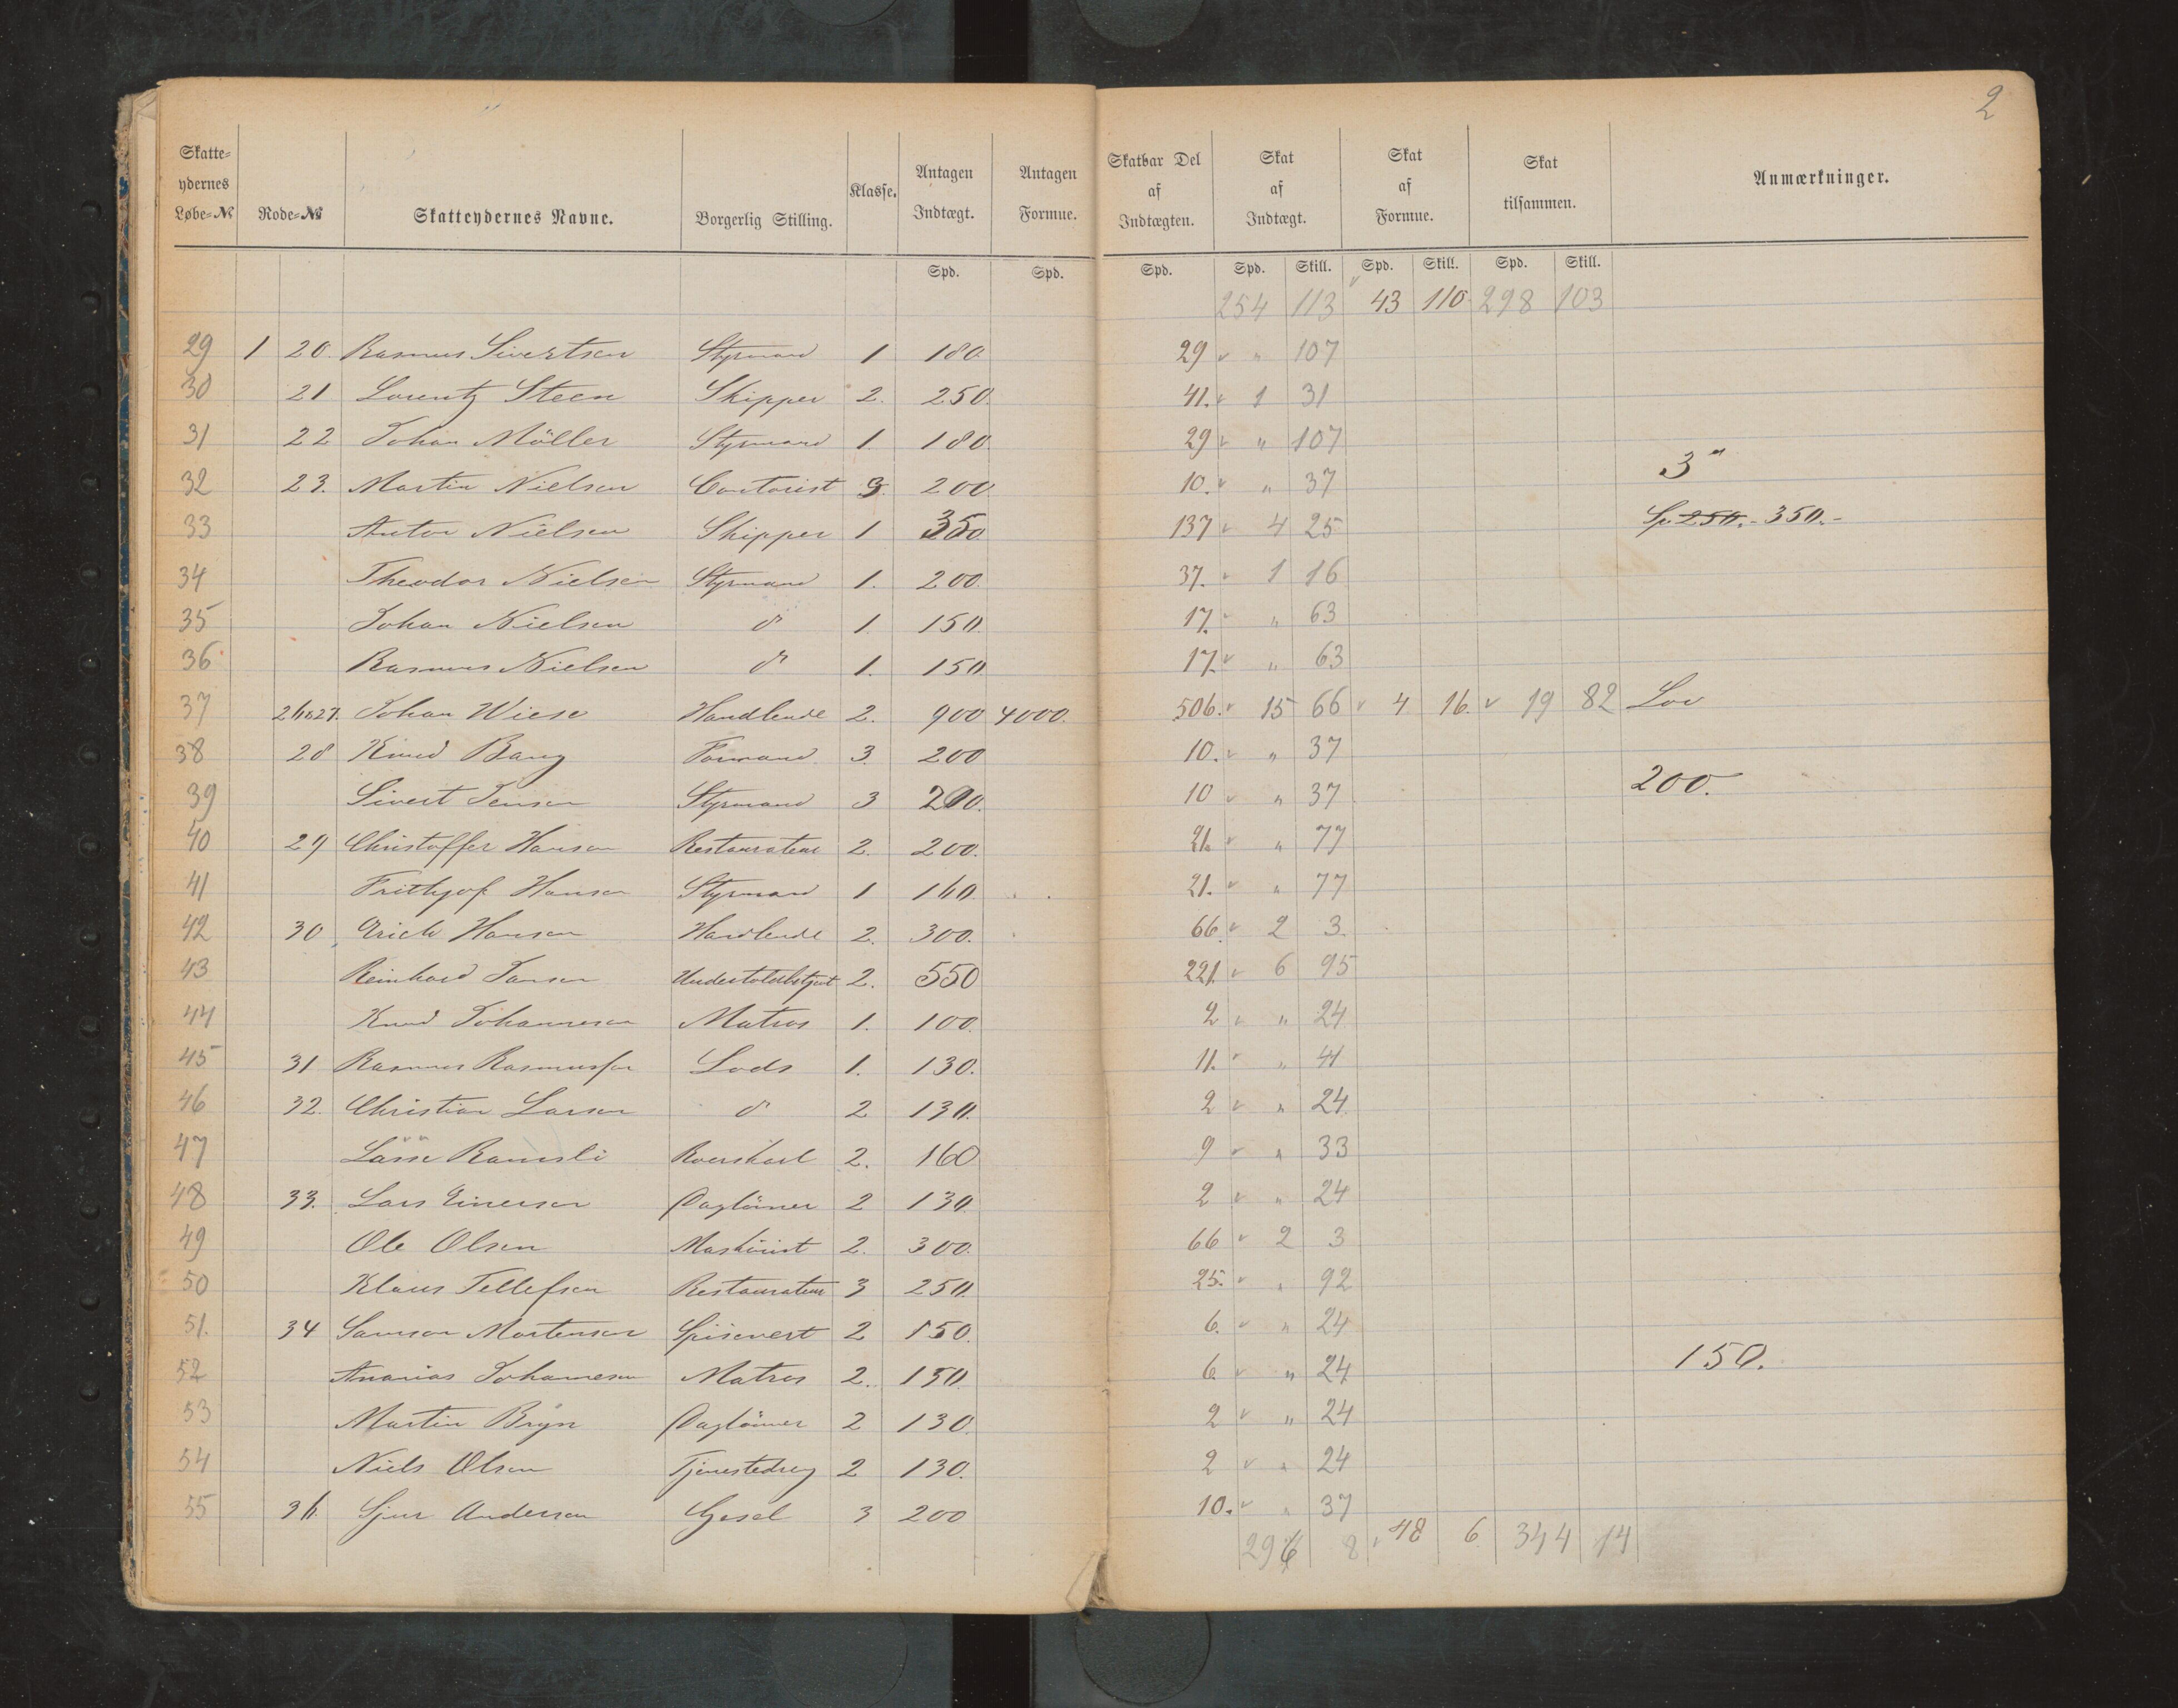 2
Skatte-ydernes Løbe-№ Rode-№ Skatteydernes Navne. Borgerlig Stilling. Klasse. Antagen Indtægt. Antagen Formue. Skatbar Del af Indtægten. Skat af Indtægt. Skat af Formue. Skat tilsammen. Anmærkninger.
Spd. Spd. Spd. Spd. Skill. Spd. Skill. Spd. Skill.
254 113 43 110 298 103
29 1 20. Rasmus Sivertsen Styrmand 1 180. 29 " 107
30 21 Lorentz Steen Skipper 2. 250. 41. 1 31
31 22 Johan Möller Styrmand 1. 180. 29 " 107
32 23. Martin Nielsen Contorist 3. 200 10. " 37 3"
33 Anton Nielsen Skipper 1 350 137 4 25 Sp. 250.- 350.-
34 Theodor Nielsen Styrmand 1. 200. 37. 1 16
35 Johan Nielsen do 1. 150. 17. " 63
36 Rasmus Nielsen do 1. 150 17 " 63
37 26&27. Johan Wiese Handlende 2. 900 4000. 506. 15 66 4 16. 19 82 Lov
38 28 Knud Bang Formand 3. 200 10. " 37
39 Sivert Jensen Styrmand 3 200. 10 " 37 200.
40 29 Christoffer Hansen Restaurateur 2. 200. 21. " 77
41 Frithjof Hansen Styrmand 1 160. 21. " 77
42 30 Erich Hansen Handlende 2. 300. 66. 2 3.
43 Reinhard Jansen Undertoldbetjent 2. 550 221. 6 95
44 Knud Johannesen Matros 1. 100. 2 " 24
45 31 Rasmus Rasmussen Lods 1. 130. 11. " 41
46 32. Christian Larsen do 2 130. 2 " 24.
47 Lasse Ramsli Roerskarl 2. 160 9 " 33
48 33. Lars Einersen Daglönner 2 130. 2 " 24
49 Ole Olsen Maskinist 2. 300. 66 2 3
50 Klaus Tellefsen Restaurateur 3 250. 25. " 92
51. 34 Samson Mortensen Spisevert 2 150. 6. " 24
52 Ananias Johannesen Matros 2. 150. 6 " 24 150.
53 Martin Bryn Daglönner 2 130. 2 " 24
54 Niels Olsen Tjenestedreng 2 130. 2 " 24
55 36. Sjur Andersen Gesel 3 200 10. " 37
296 8 48 6 344 14